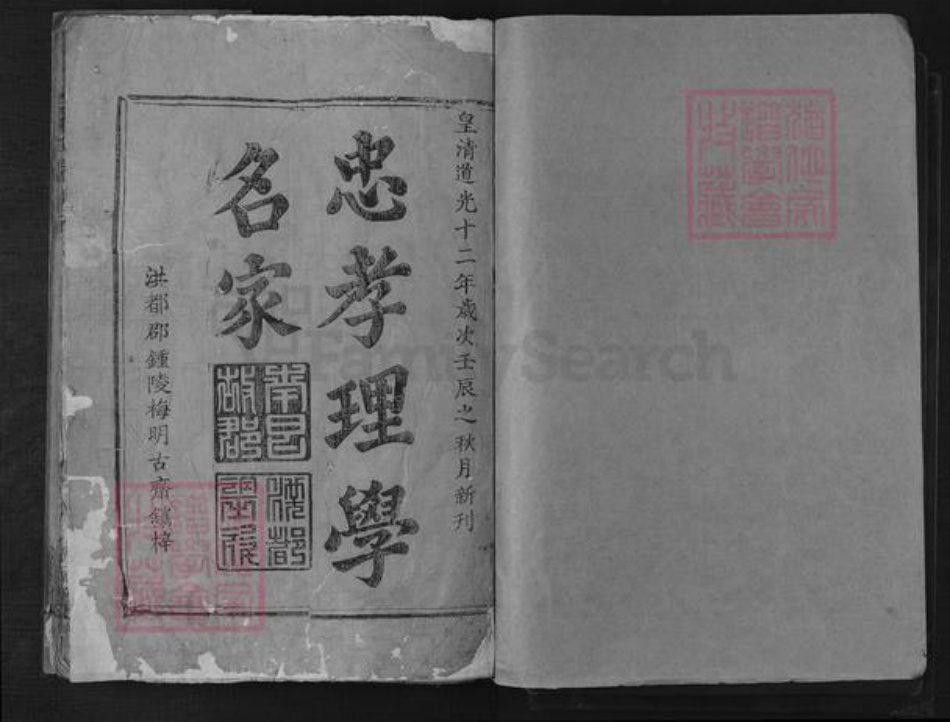 皇清道光十二年歲次壬辰之秋月新刊
忠孝理學
名家
南昌
故郡
洪都
洪都郡鍾陵梅明古齋鐫梓
FamilySearch
譜學會